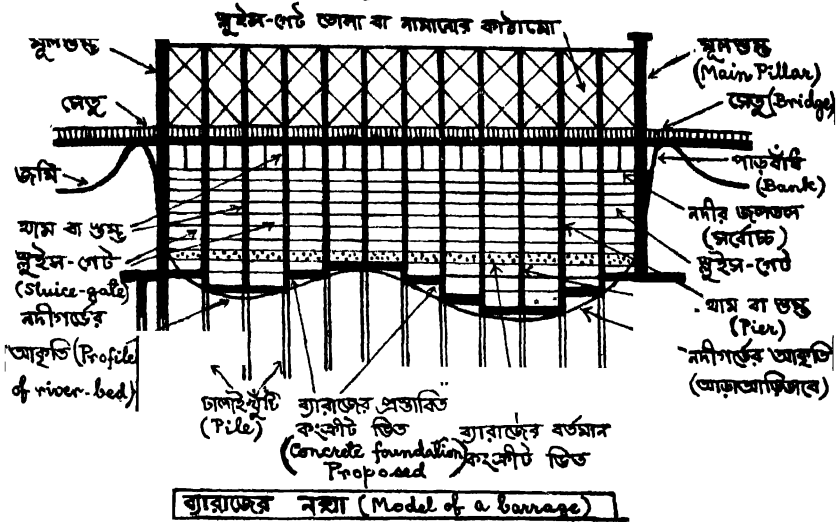 স্লুইস-গেট তোলা বা নামানোর কাঠামো
মূলস্তম্ভ
সেতু
জমি
থাম বা স্তম্ভ
স্লুইস-গেট
(Sluice-gate)
নদীগর্ভের
আকৃতি (Profile
of river-bed)
মূলস্তম্ভ
(Main Pillar)
সেতু (Bridge)
পাড়বাঁধ
(Bank)
নদীর জলতল
(সর্বোচ্চ)
স্লুইস-গেট
থাম বা স্তম্ভ
(Pier)
নদীগর্ভের আকৃতি
(আড়াআড়িভাবে)
ঢালাইখুঁটি
(Pile)
ব্যারাজের প্রস্তাবিত
কংক্রীট ভিত
(Concrete foundation)
Proposed
ব্যারাজের বর্তমান
কংক্রীট ভিত
ব্যারাজের নক্সা (Model of a barrage)